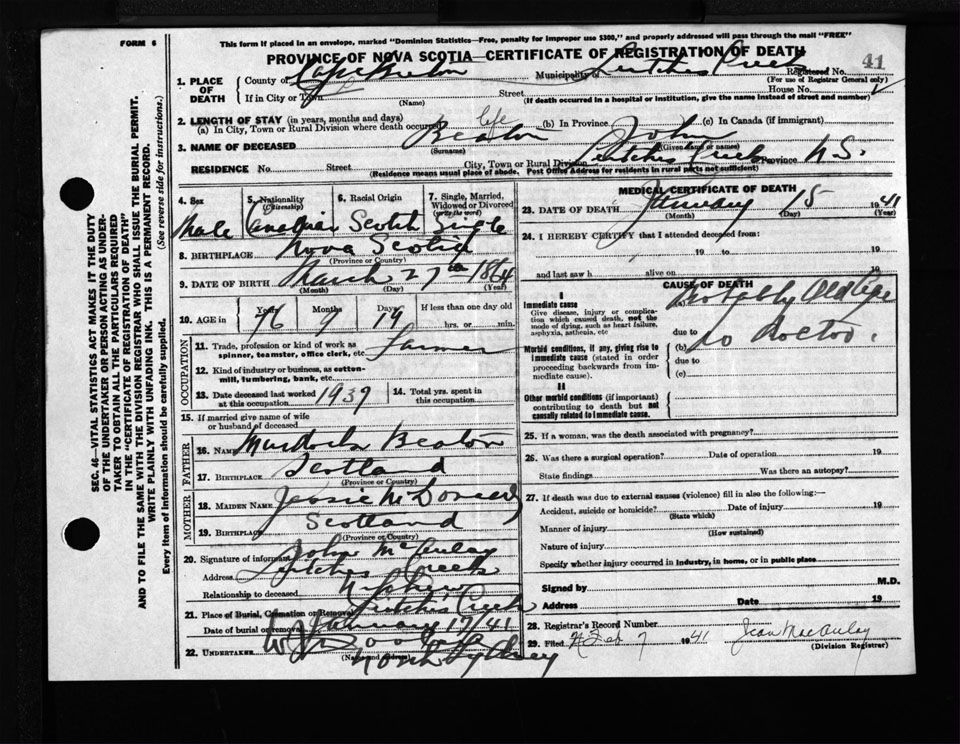 FORM 6
This form if placed in an envelope, marked "Dominion Statistics—Free, penalty for improper use $300," and properly addressed will pass through the mail "FREE"
PROVINCE OF NOVA SCOTIA—CERTIFICATE OF REGISTRATION OF DEATH
1. PLACE OF DEATH County of Cape Breton Municipality of Leitches Creek Registered No. 41
(For use of Registrar General only)
If in City or Town (Name) Street House No.
(If death occurred in a hospital or institution, give the name instead of street and number)
2. LENGTH OF STAY (in years, months and days)
(a) In City, Town or Rural Division where death occurred life (b) In Province (c) In Canada (if immigrant)
3. NAME OF DECEASED Beaton John
(Surname) (Given name or names)
RESIDENCE No. Street City, Town or Rural Division Leitches Creek Province N.S.
(Residence means usual place of abode. Post Office Address for residents in rural parts not sufficient)
4. Sex Male
5. Nationality (Citizenship) Canadian
6. Racial Origin Scotch
7. Single, Married, Widowed or Divorced (write the word) Single
8. BIRTHPLACE Nova Scotia
(Province or Country)
9. DATE OF BIRTH March 27th 1864
(Month) (Day) (Year)
10. AGE in Years 76 Months 9 Days 19 If less than one day old
hrs. or min.
OCCUPATION
11. Trade, profession or kind of work as spinner, teamster, office clerk, etc. Farmer
12. Kind of industry or business, as cotton-mill, lumbering, bank, etc.
13. Date deceased last worked at this occupation 1939
14. Total yrs. spent in this occupation
15. If married give name of wife or husband of deceased
FATHER
16. NAME Murdoch Beaton
17. BIRTHPLACE Scotland
(Province or Country)
MOTHER
18. MAIDEN NAME Jessie McDonald
19. BIRTHPLACE Scotland
(Province or Country)
20. Signature of informant John McAulay
Address Leitches Creek
Relationship to deceased Nephew
21. Place of Burial, Cremation or Removal Leitches Creek
Date of burial or removal January 17/41
22. UNDERTAKER
(Name and Address)
North Sydney
MEDICAL CERTIFICATE OF DEATH
23. DATE OF DEATH January 15 1941
(Month) (Day) (Year)
24. I HEREBY CERTIFY that I attended deceased from:
19 to 19
and last saw h alive on 19
CAUSE OF DEATH
I
Immediate cause
Give disease, injury or complication which caused death, not the mode of dying, such as heart failure, asphyxia, asthenia, etc
(a) Probably Old Age
due to
Morbid conditions, if any, giving rise to immediate cause (stated in order proceeding backwards from immediate cause).
(b) no Doctor.
due to
(c)
II
Other morbid conditions (if important) contributing to death but not causally related to immediate cause.
25. If a woman, was the death associated with pregnancy?
26. Was there a surgical operation? Date of operation 19
State findings Was there an autopsy?
27. If death was due to external causes (violence) fill in also the following:—
Accident, suicide or homicide? Date of injury 19
(State which)
Manner of injury
(How sustained)
Nature of injury
Specify whether injury occurred in industry, in home, or in public place
Signed by M.D.
Address Date 19
28. Registrar's Record Number
29. Filed Feb 7 1941 Jean MacAulay
(Division Registrar)
SEC. 46—VITAL STATISTICS ACT MAKES IT THE DUTY
OF THE UNDERTAKER OR PERSON ACTING AS UNDER-
TAKER TO OBTAIN ALL THE PARTICULARS REQUIRED
IN THE "CERTIFICATE OF REGISTRATION OF DEATH"
AND TO FILE THE SAME WITH THE DIVISION REGISTRAR WHO SHALL ISSUE THE BURIAL PERMIT.
WRITE PLAINLY WITH UNFADING INK. THIS IS A PERMANENT RECORD.
Every item of information should be carefully supplied. (See reverse side for instructions.)